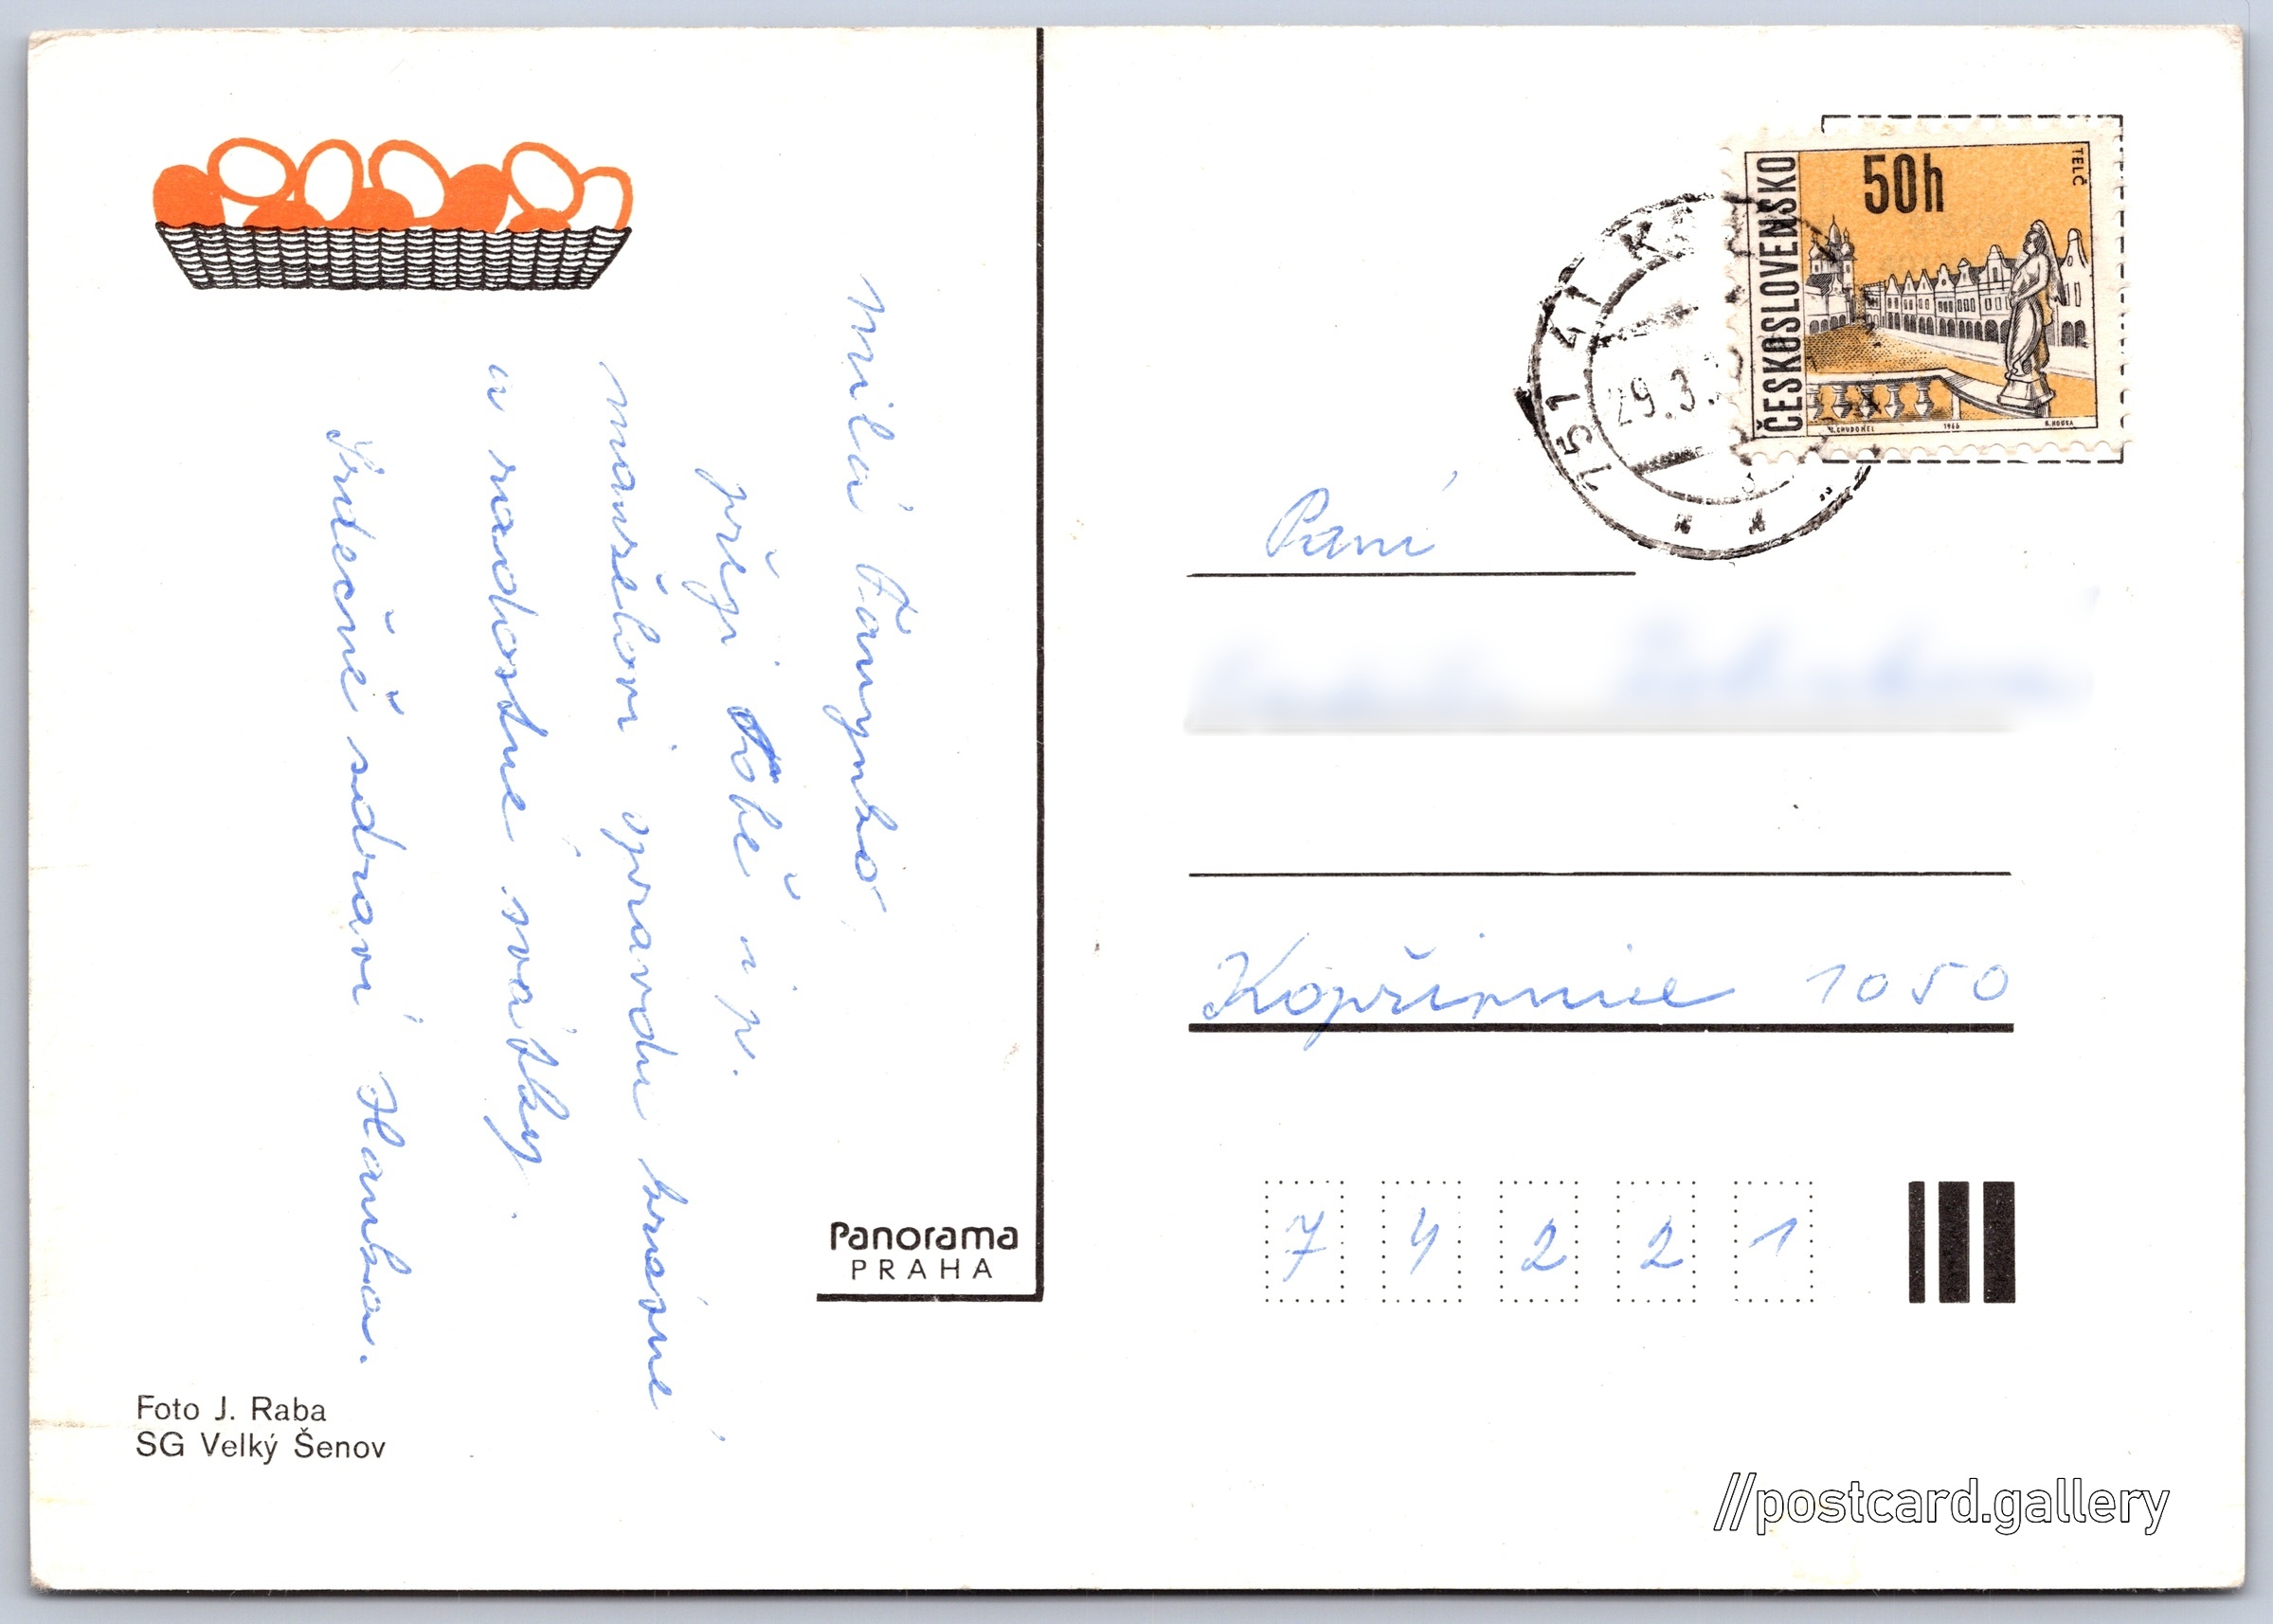 Milá Fanynko
přeji Tobě i p.
manželovi opravdu krásné
a radostné svátky.
Srdečně zdraví Hanka.
Panorama
PRAHA
Foto J. Raba
SG Velký Šenov
ČESKOSLOVENSKO
50h
TELČ
1966
751 41
29.3.
Paní
Kopřivnice 1050
7 4 2 2 1
//postcard.gallery